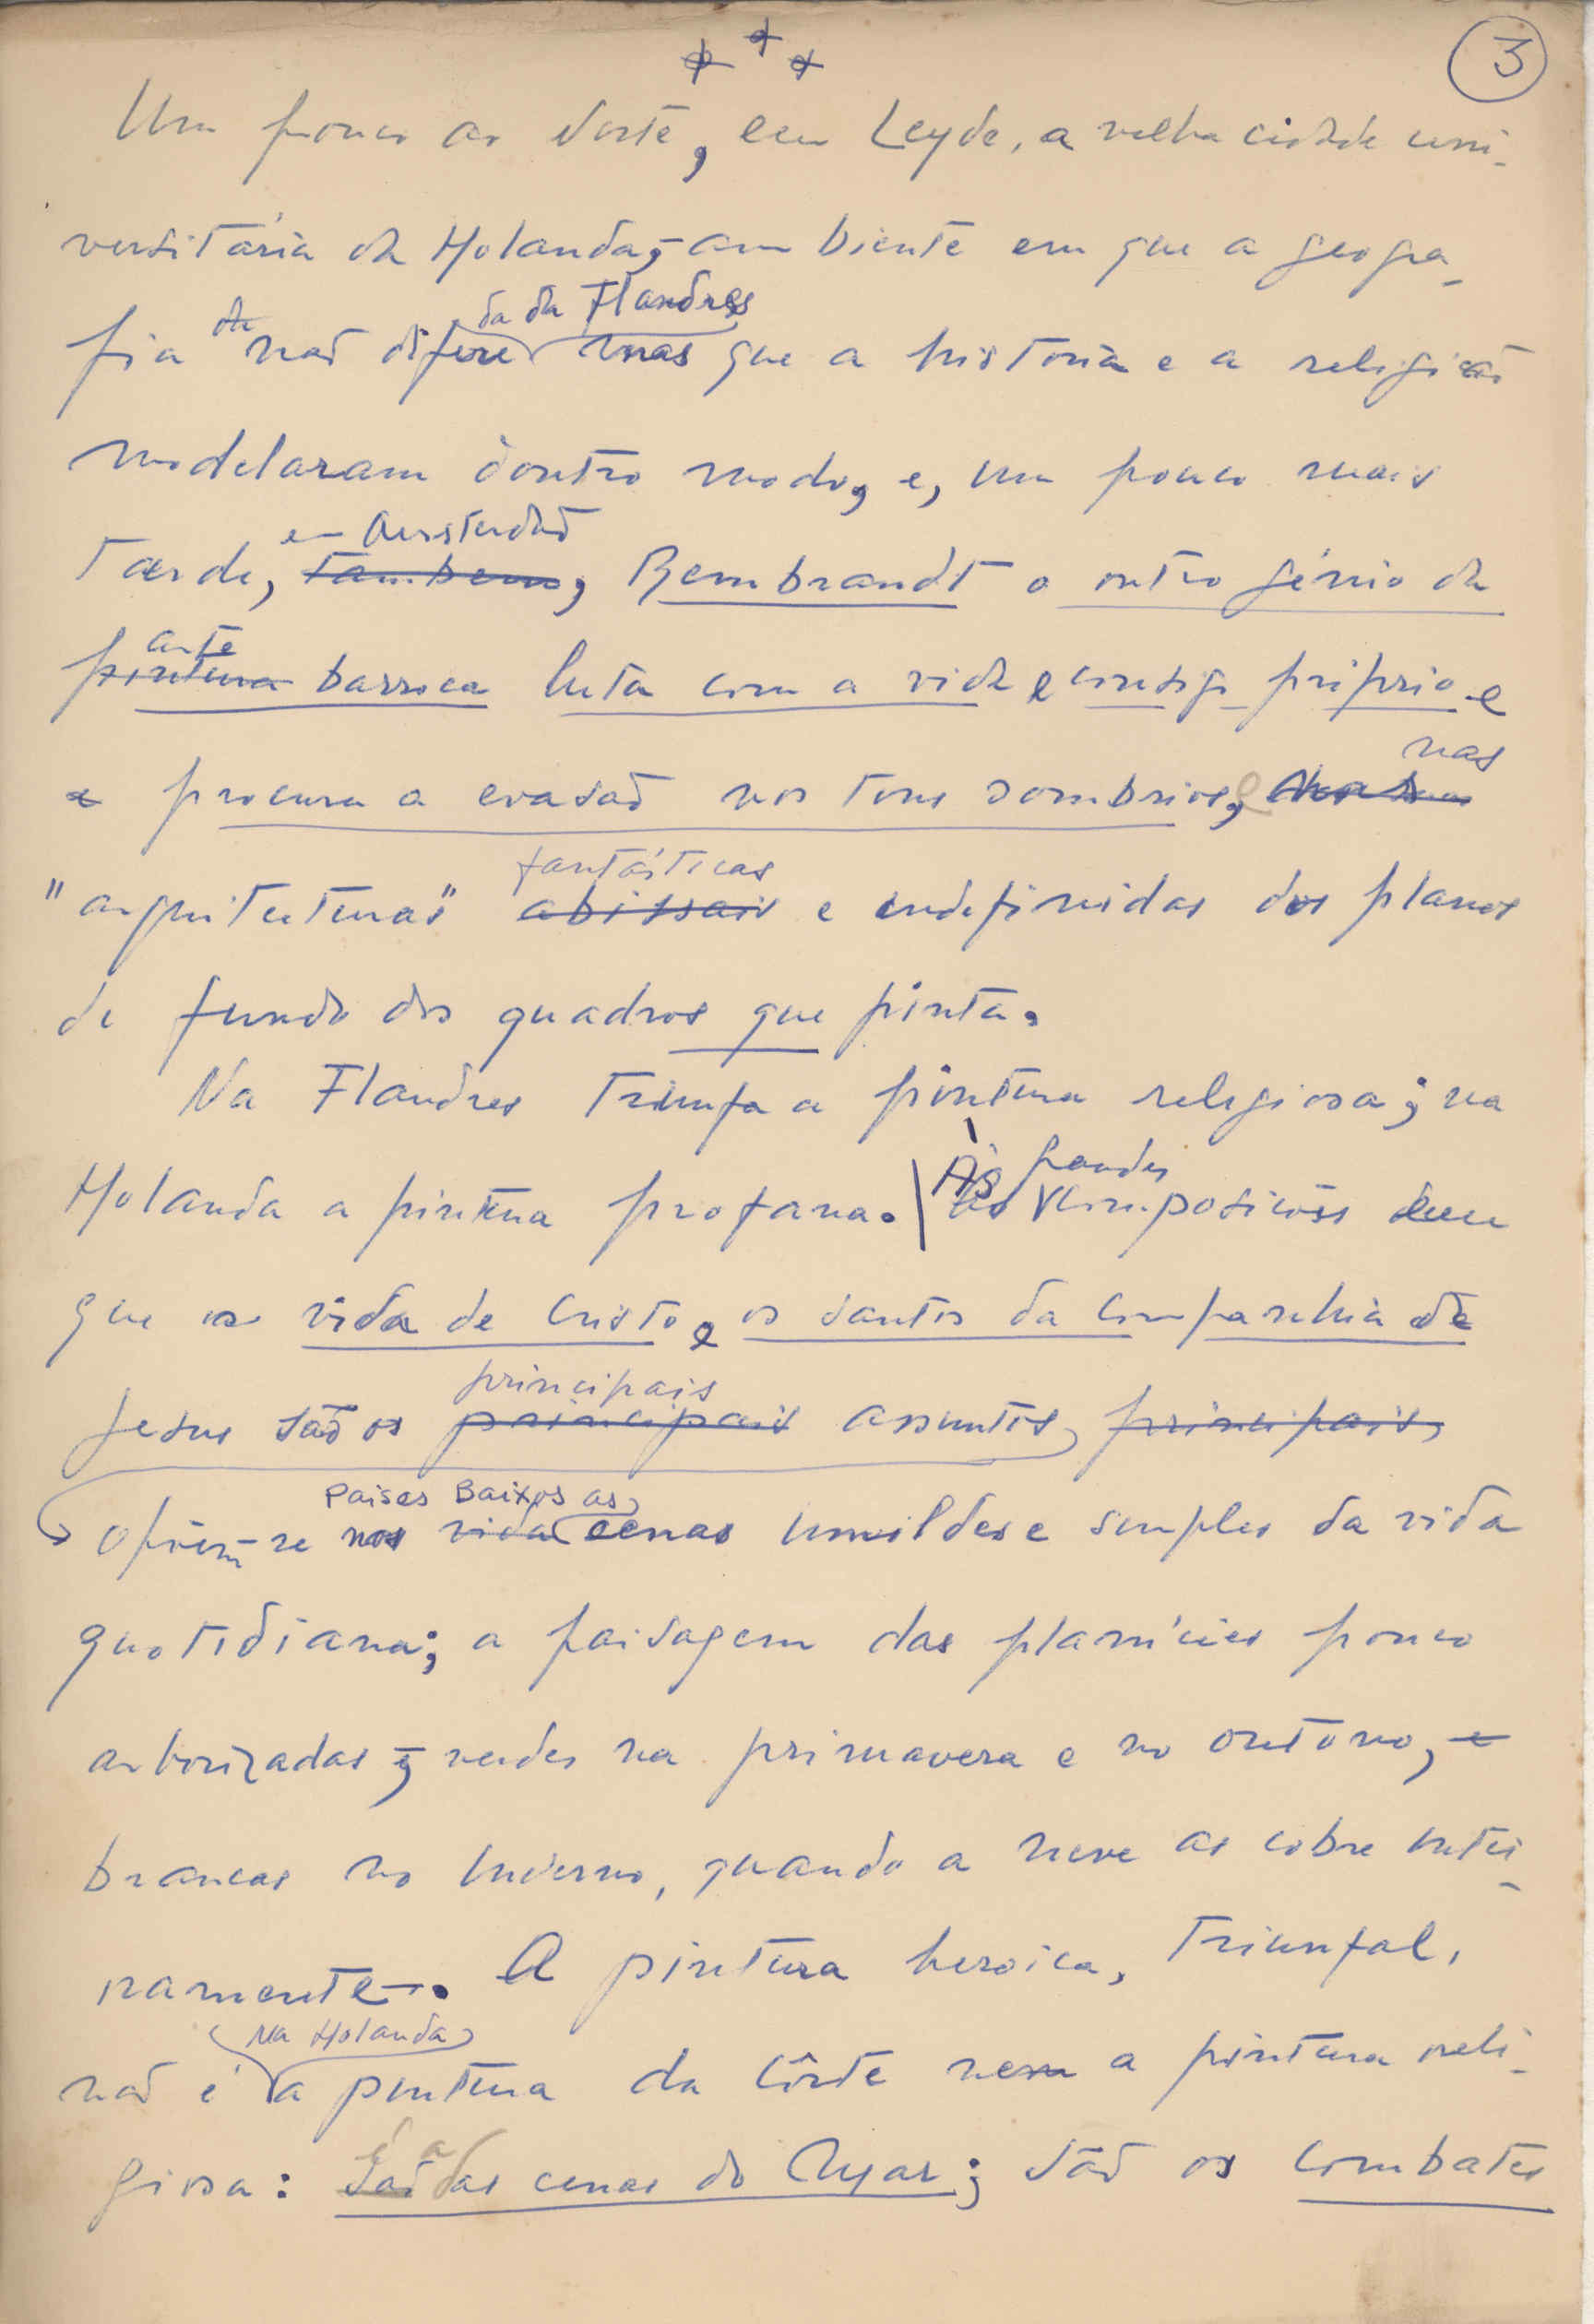 3
Um pouco ao Norte, em Leyde, a velha cidade uni-
versitária da Holanda, ambiente em que a geogra-
da da Flandres
fia não difere mas que a história e a religião
modelaram doutro modo, e, um pouco mais
em Amsterdão
tarde, tambem, Rembrandt o outro génio da
arte
pintura barroca luta com a vida e consigo próprio e
nas
e procura a evasão nos tons sombrios, e
fantásticas
"arquitecturas" abissais e indefinidas dos planos
de fundo dos quadros que pinta.
Na Flandres triunfa a pintura religiosa; na
grandes
Holanda a pintura profana. Às composições em
que a vida de Cristo e os santos da Companhia de
principais
Jesus são os principais assuntos, principais,
Paises Baixos as
opõem-se nos vida cenas humildes e simples da vida
quotidiana; a paisagem das planícies pouco
arborizadas, verdes na primavera e no outono, e
brancas no Inverno, quando a neve as cobre intei-
ramente. A pintura heroica, triunfal,
na Holanda
não é a pintura da Côrte nem a pintura reli-
é a
giosa: São das cenas do Lar; são os combates